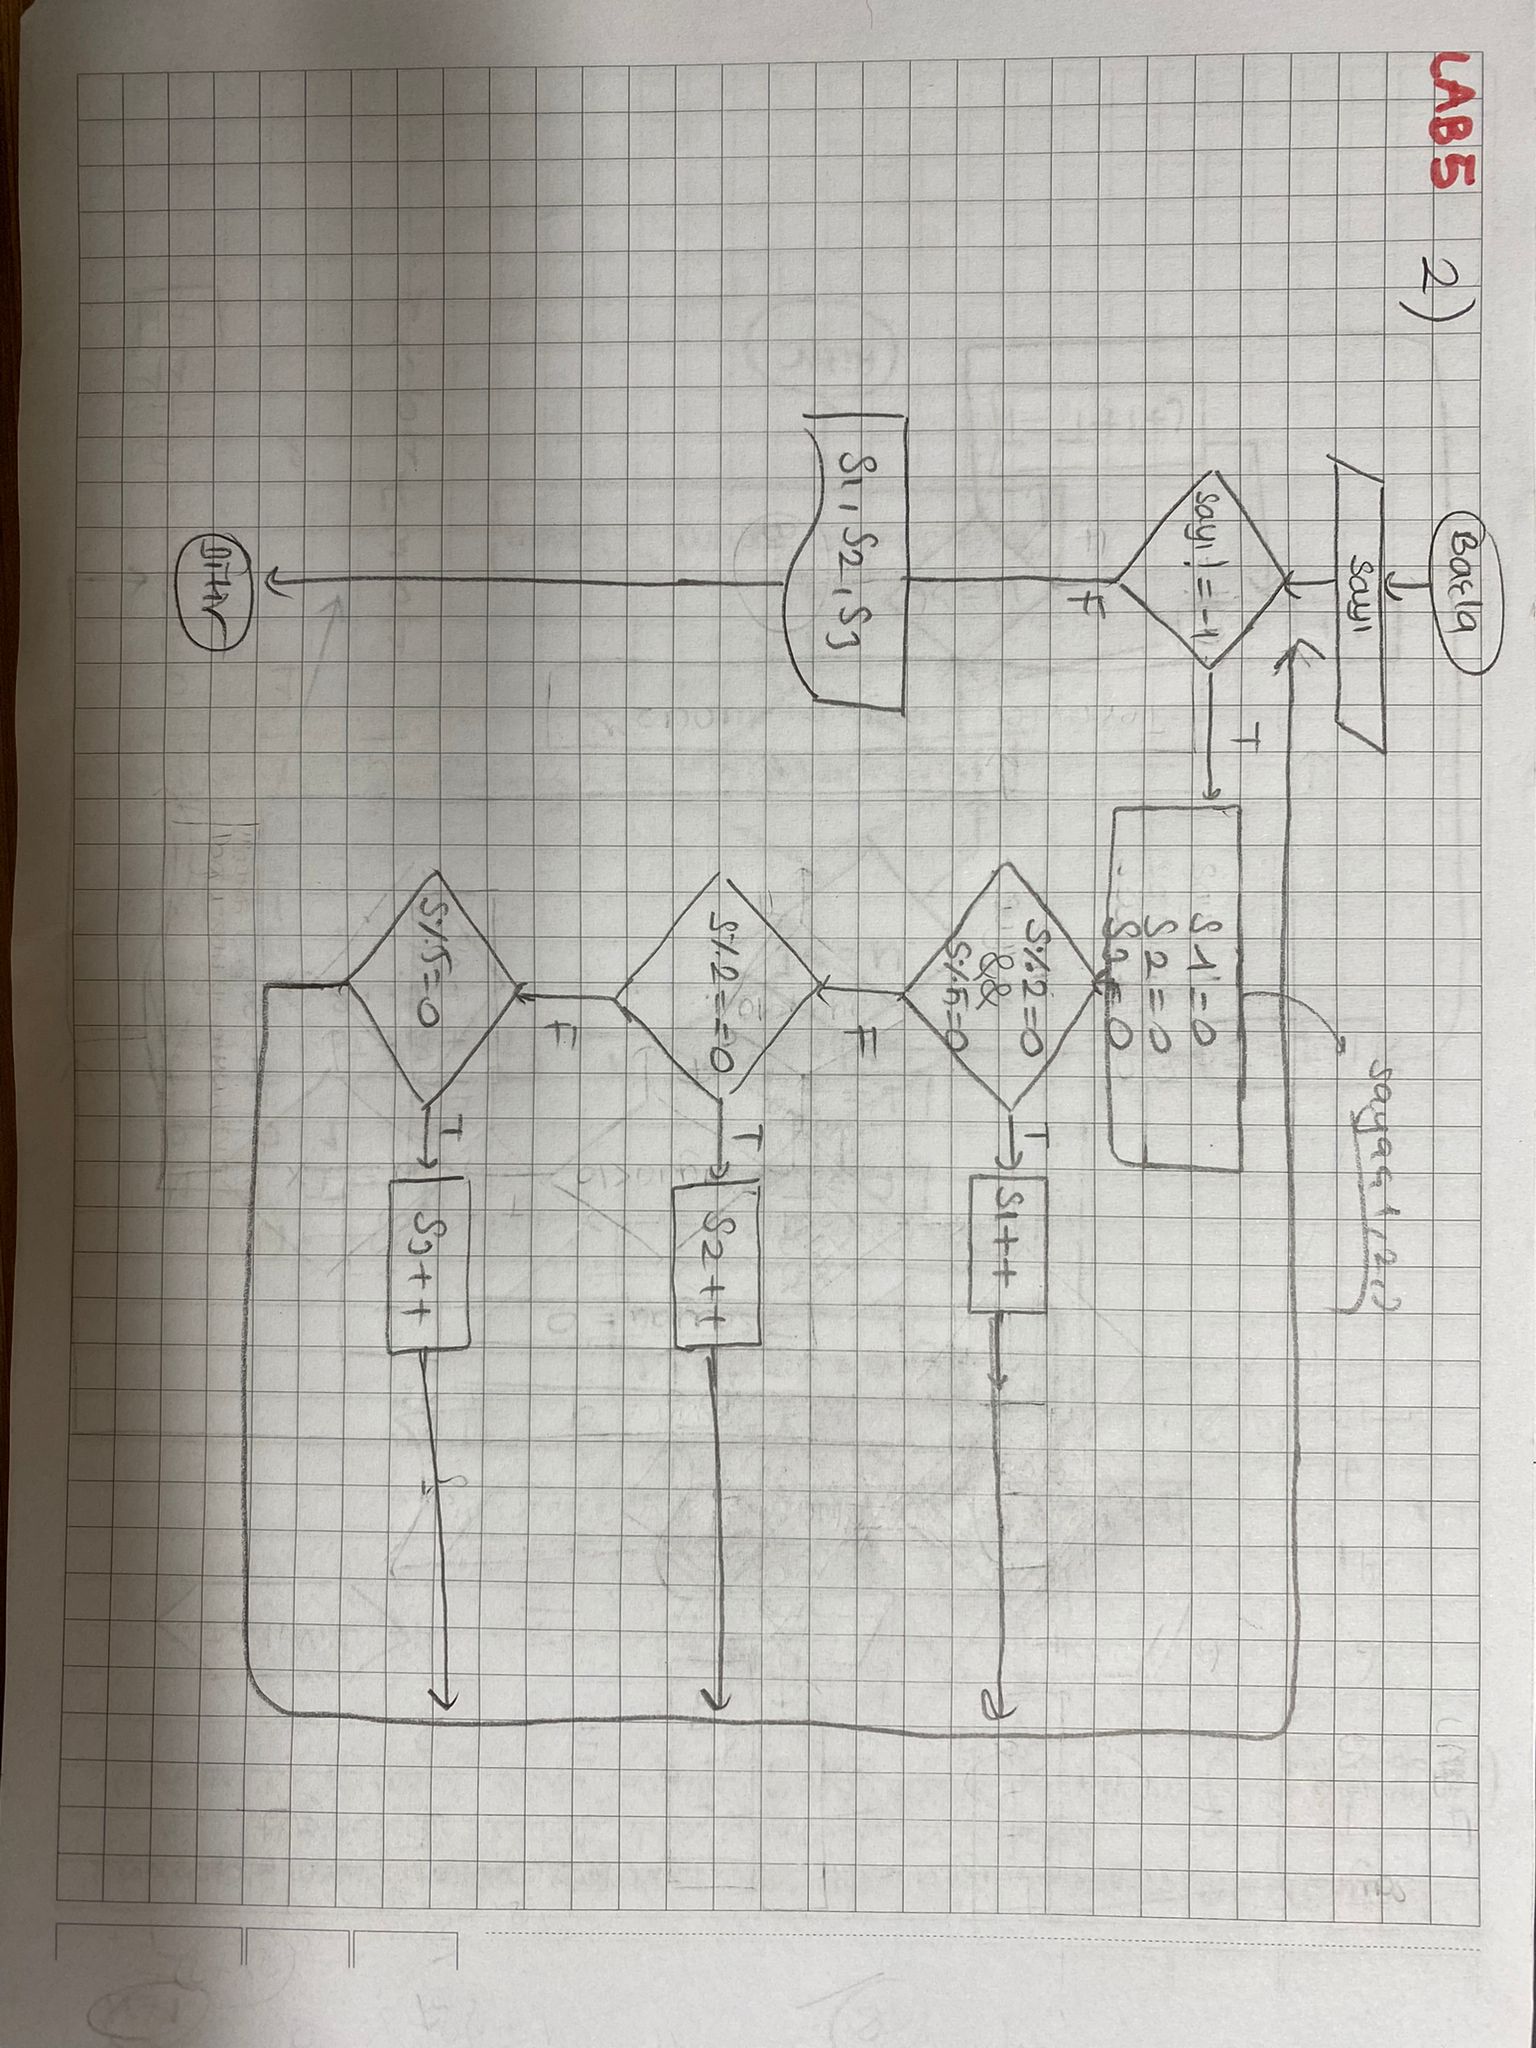 LAB5
2)
Başla
sayı
sayı != -1
T
F
S1=0
S2=0
S3=0
S%2=0
&&
S%5=0
T
S1++
F
S%2==0
T
S2++
F
S%5=0
T
S3++
S1, S2, S3
Bitir